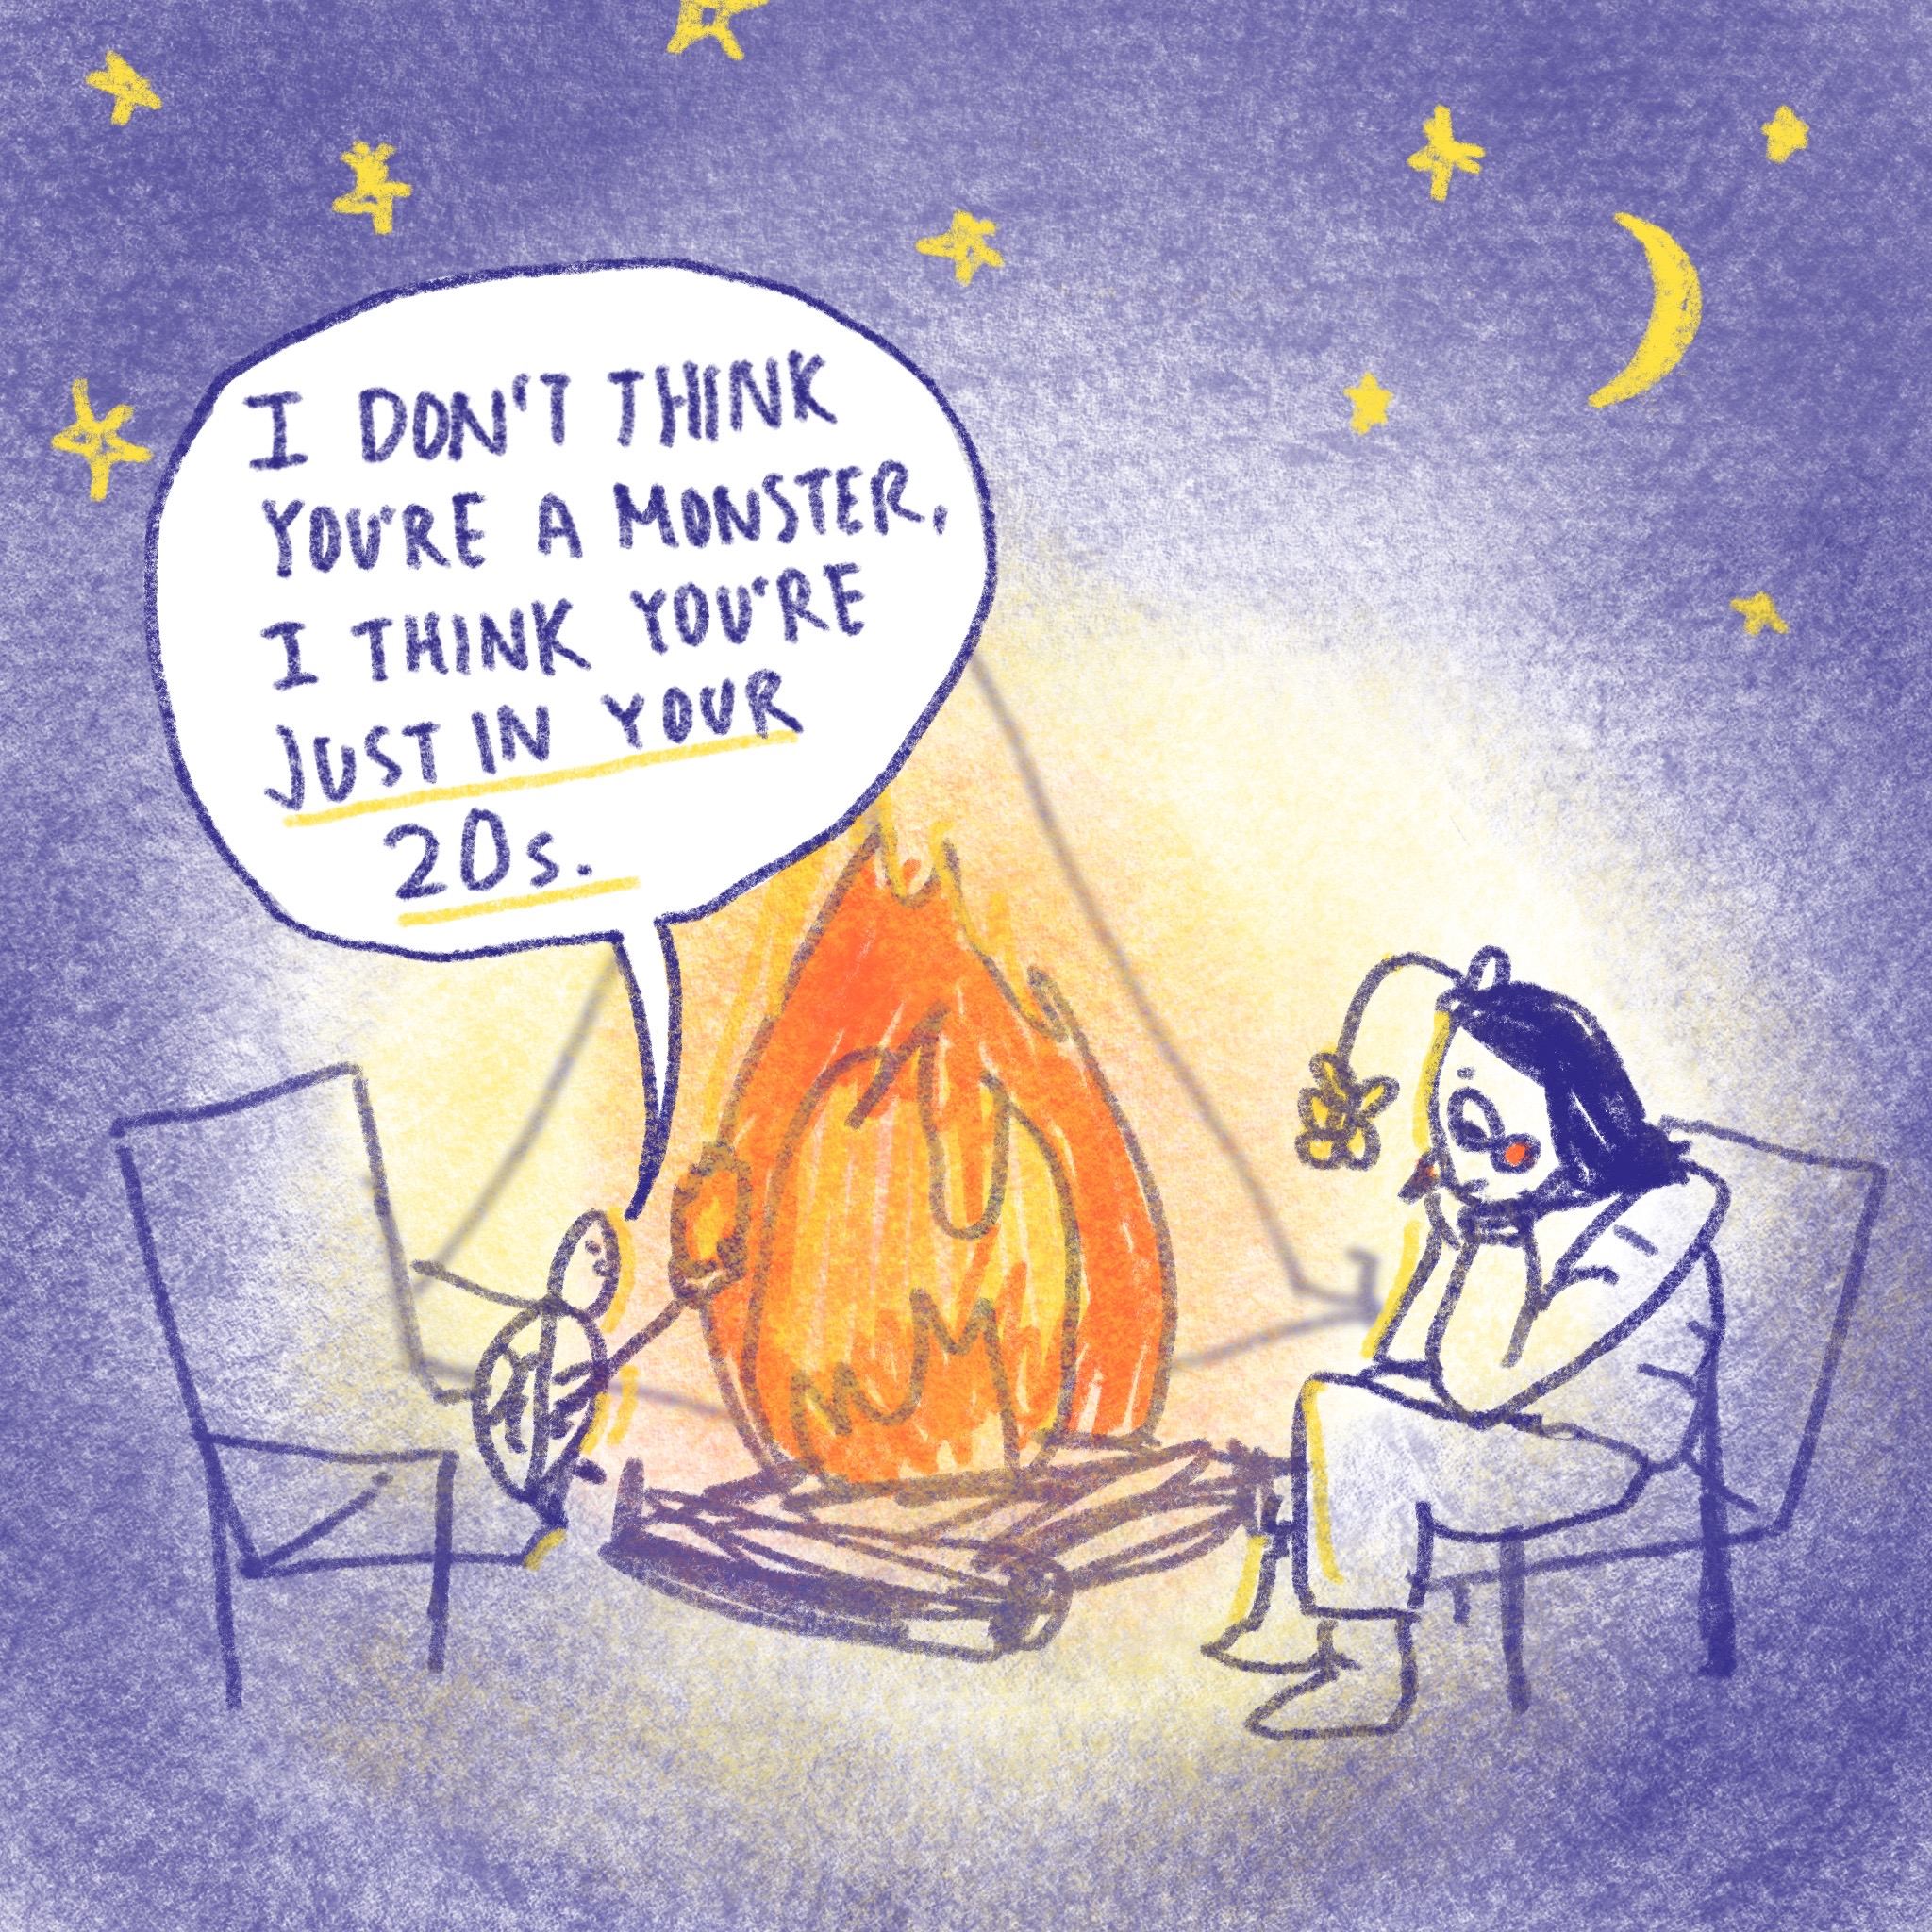 I DON'T THINK
YOU'RE A MONSTER,
I THINK YOU'RE
JUST IN YOUR
20s.